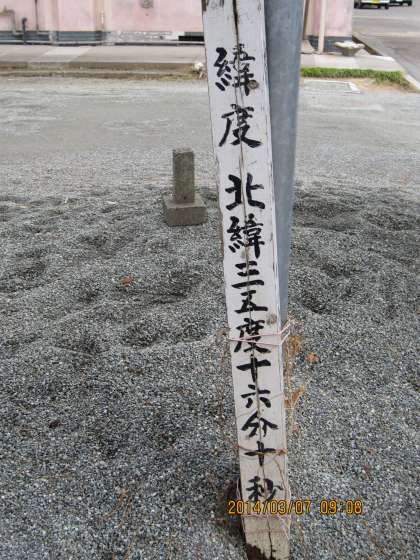 緯度 北緯三五度十六分十秒
2014/03/07 09:08